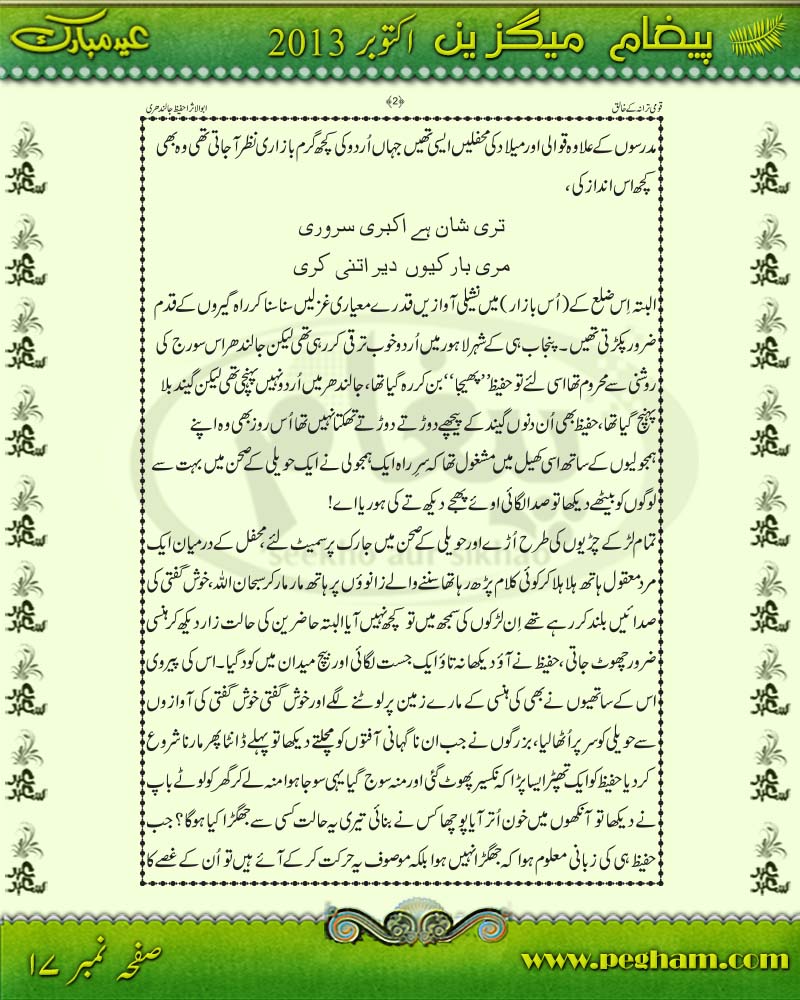 پیغام میگزین اکتوبر 2013
عید مبارک
قومی ترانہ کے خالق
﴿2﴾
ابوالاثر حفیظ جالندھری
مدرسوں کے علاوہ قوالی اور میلاد کی محفلیں ایسی تھیں جہاں اُردو کی کچھ گرم بازاری نظر آ جاتی تھی وہ بھی
کچھ اس انداز کی ،
تری شان ہے اکبری سروری
مری بار کیوں دیر اتنی کری
البتہ اِس ضلع کے (اُس بازار) میں نشیلی آوازیں قدرے معیاری غزلیں سنا سنا کر راہ گیروں کے قدم
ضرور پکڑتی تھیں ۔ پنجاب ہی کے شہر لاہور میں اُردو خوب ترقی کر رہی تھی لیکن جالندھر اس سورج کی
روشنی سے محروم تھا اسی لئے تو حفیظ ’’پھیجا‘‘ بن کر رہ گیا تھا، جالندھر میں اُردو نہیں پہنچی تھی لیکن گیند بلا
پہنچ گیا تھا، حفیظ بھی اُن دنوں گیند کے پیچھے دوڑتے دوڑتے تھکتا نہیں تھا اُس روز بھی وہ اپنے
ہمجولیوں کے ساتھ اسی کھیل میں مشغول تھا کہ سرِ راہ ایک ہمجولی نے ایک حویلی کے صحن میں بہت سے
لوگوں کو بیٹھے دیکھا تو صدا لگائی اوئے پھجے دیکھ تے کی ہو ریا اے!
تمام لڑکے چڑیوں کی طرح اُڑے اور حویلی کے صحن میں جا رک پر سمیٹ لئے، محفل کے درمیان ایک
مرد معقول ہاتھ ہلا ہلا کر کوئی کلام پڑھ رہا تھا سننے والے زانوؤں پر ہاتھ مار مار کر سبحان اللہ، خوش گفتی کی
صدائیں بلند کر رہے تھے اِن لڑکوں کی سمجھ میں تو کچھ نہیں آیا البتہ حاضرین کی حالت زار دیکھ کر ہنسی
ضرور چھوٹ جاتی، حفیظ نے آؤ دیکھا نہ تاؤ ایک جست لگائی اور بیچ میدان میں کود گیا۔ اس کی پیروی
اس کے ساتھیوں نے بھی کی ہنسی کے مارے زمین پر لوٹنے لگے اور خوش گفتی خوش گفتی کی آوازوں
سے حویلی کو سر پر اُٹھا لیا، بزرگوں نے جب ان ناگہانی آفتوں کو مچلتے دیکھا تو پہلے ڈانٹا پھر مارنا شروع
کر دیا حفیظ کو ایک تھپڑ ایسا پڑا کہ نکسیر پھوٹ گئی اور منہ سوج گیا یہی سوجا ہوا منہ لے کر گھر کو لوٹے باپ
نے دیکھا تو آنکھوں میں خون اُتر آیا پوچھا کس نے بنائی تیری یہ حالت کسی سے جھگڑا کیا ہوگا؟ جب
حفیظ ہی کی زبانی معلوم ہوا کہ جھگڑا نہیں ہوا بلکہ موصوف یہ حرکت کر کے آئے ہیں تو اُن کے غصے کا
seekho aur sikhao
صفحہ نمبر ۱۷
www.pegham.com